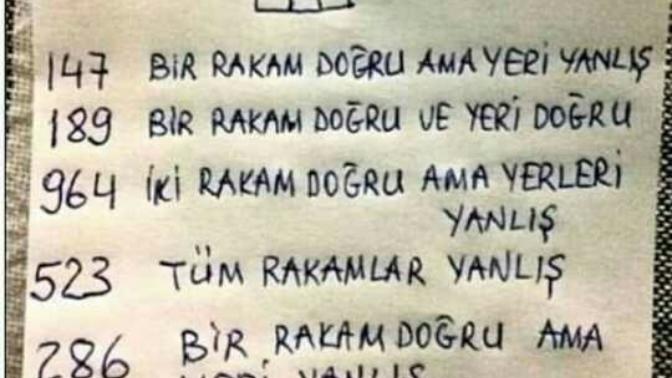 147 BİR RAKAM DOĞRU AMA YERİ YANLIŞ
189 BİR RAKAM DOĞRU VE YERİ DOĞRU
964 İKİ RAKAM DOĞRU AMA YERLERİ
YANLIŞ
523 TÜM RAKAMLAR YANLIŞ
286 BİR RAKAM DOĞRU AMA
YERİ YANLIŞ